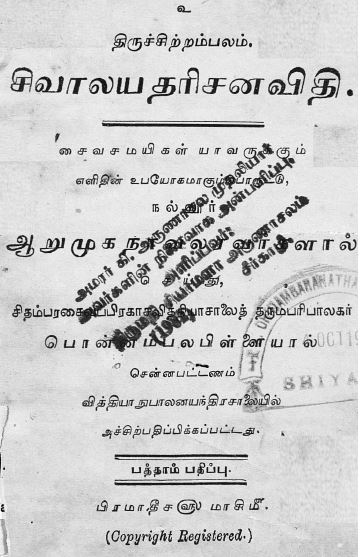 உ
திருச்சிற்றம்பலம்.
சிவாலயதரிசனவிதி.
சைவசமயிகள் யாவருக்கும்
எளிதின் உபயோகமாகும்பொருட்டு,
நல்லூர்
ஆறுமுகநாவலரவர்களால்
செய்து,
சிதம்பரசைவப்பிரகாசவித்தியாசாலைத் தருமபரிபாலகர்
பொன்னம்பலபிள்ளையால்
சென்னபட்டணம்
வித்தியாநுபாலனயந்திரசாலையில்
அச்சிற்பதிப்பிக்கப்பட்டது.
பத்தாம் பதிப்பு.
பிரமாதீச௵ மாசி௴.
(Copyright Registered.)
அமரர் கி. அருணாசல முதலியார்
அவர்களின் நினைவாக அன்பளிப்பு.
அளிப்பவர்:
அருணாசலம்
சீர்காழி
(1984)
OCT 19
SHIYA